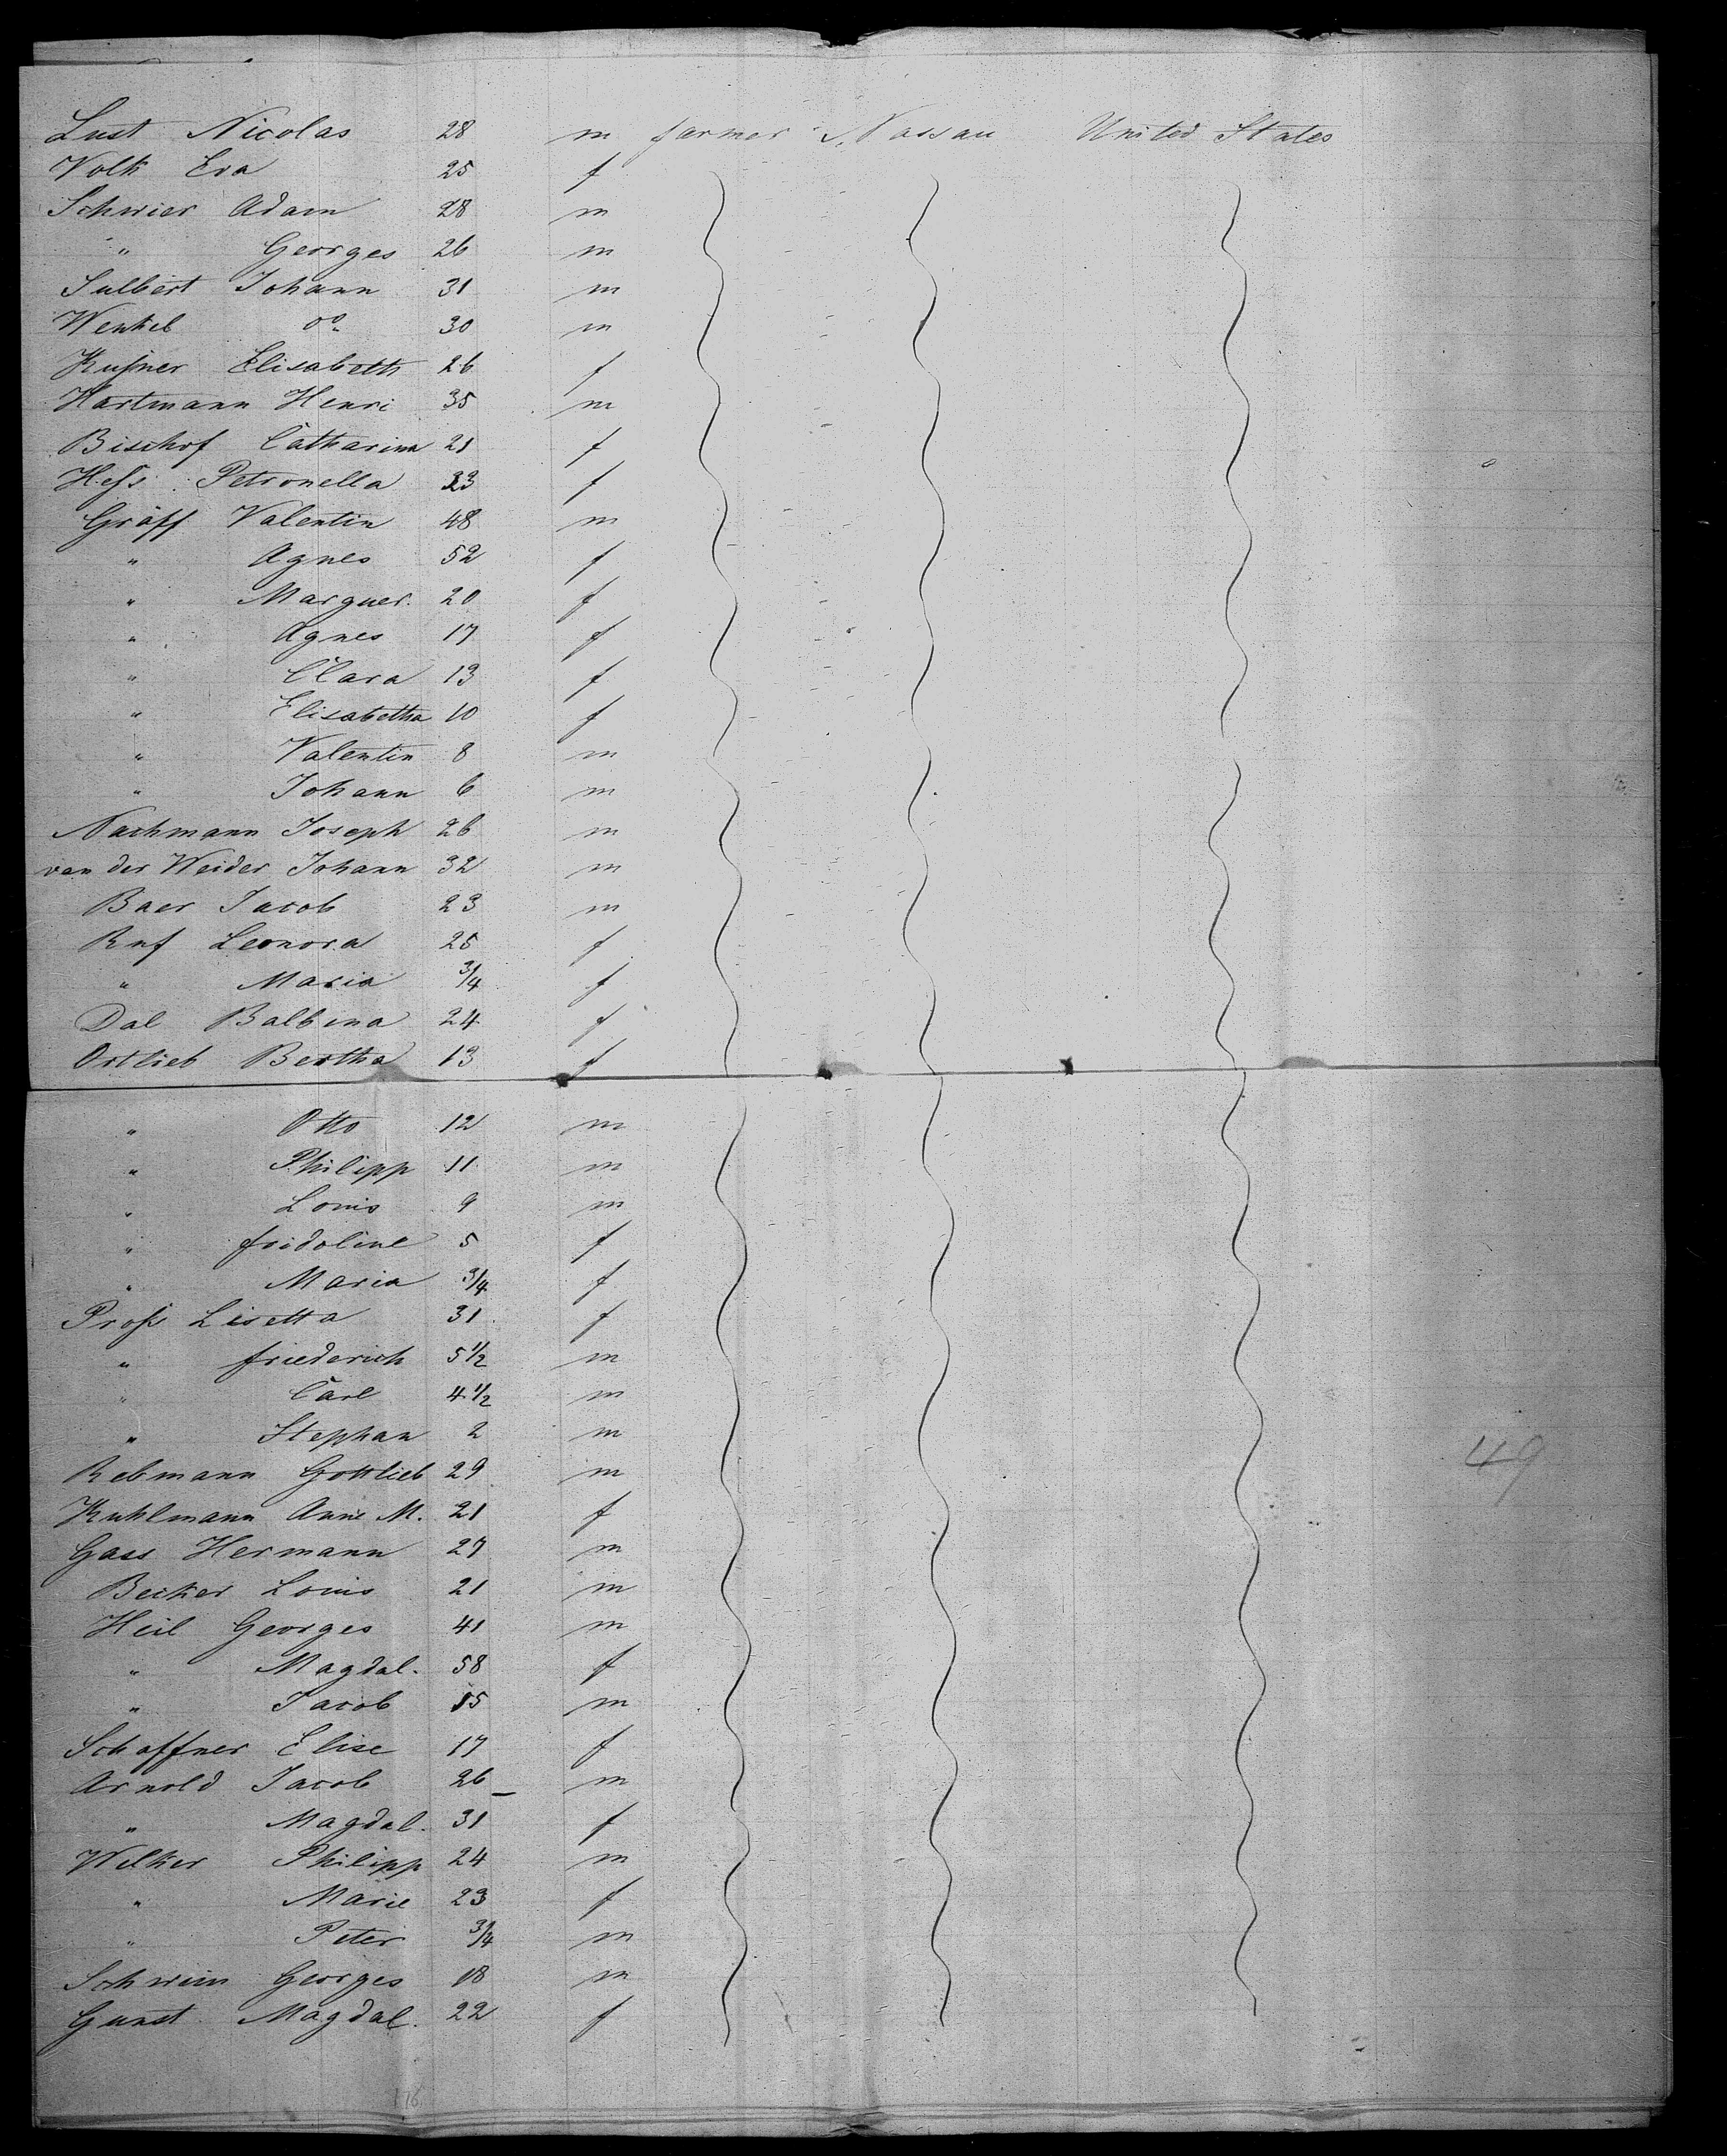 Lust Nicolas 28 m farmer Nassau United States
Volk Eva 25 f
Schwier Adam 28 m
" Georges 26 m
Sulbert Johann 31 m
Wenkel do 30 m
Kußner Elisabeth 26 f
Hartmann Henri 35 m
Bischof Catharina 21 f
Heß Petronella 33 f
Gräff Valentin 48 m
" Agnes 52 f
" Marguer. 20 f
" Agnes 17 f
" Clara 13 f
" Elisabetha 10 f
" Valentin 8 m
" Johann 6 m
Nachmann Joseph 26 m
van der Weider Johann 32 m
Baer Jacob 23 m
Ruf Leonora 25 f
" Maria 3/4 f
Dal Balbina 24 f
Ortlieb Bertha 13 f
" Otto 12 m
" Philipp 11 m
" Louis 9 m
" fridoline 5 f
" Maria 3/4 f
Proß Lisetta 31 f
" friederich 5 1/2 m
" Carl 4 1/2 m
" Stephan 2 m
Rebmann Gottlieb 29 m
49
Kuhlmann Anne M. 21 f
Gass Hermann 27 m
Becker Louis 21 m
Heil Georges 41 m
" Magdal. 58 f
" Jacob 15 m
Schaffner Elise 17 f
Arnold Jacob 26 m
" Magdal. 31 f
Welker Philipp 24 m
" Marie 23 f
" Peter 3/4 m
Schwein Georges 18 m
Gunst Magdal. 22 f